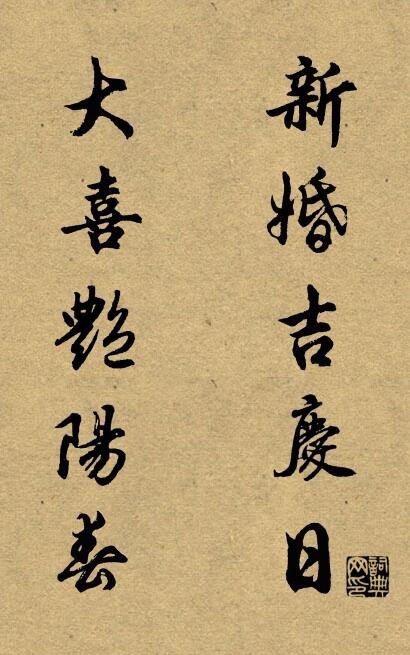 新婚吉慶日
大喜艷陽春
詞典网印